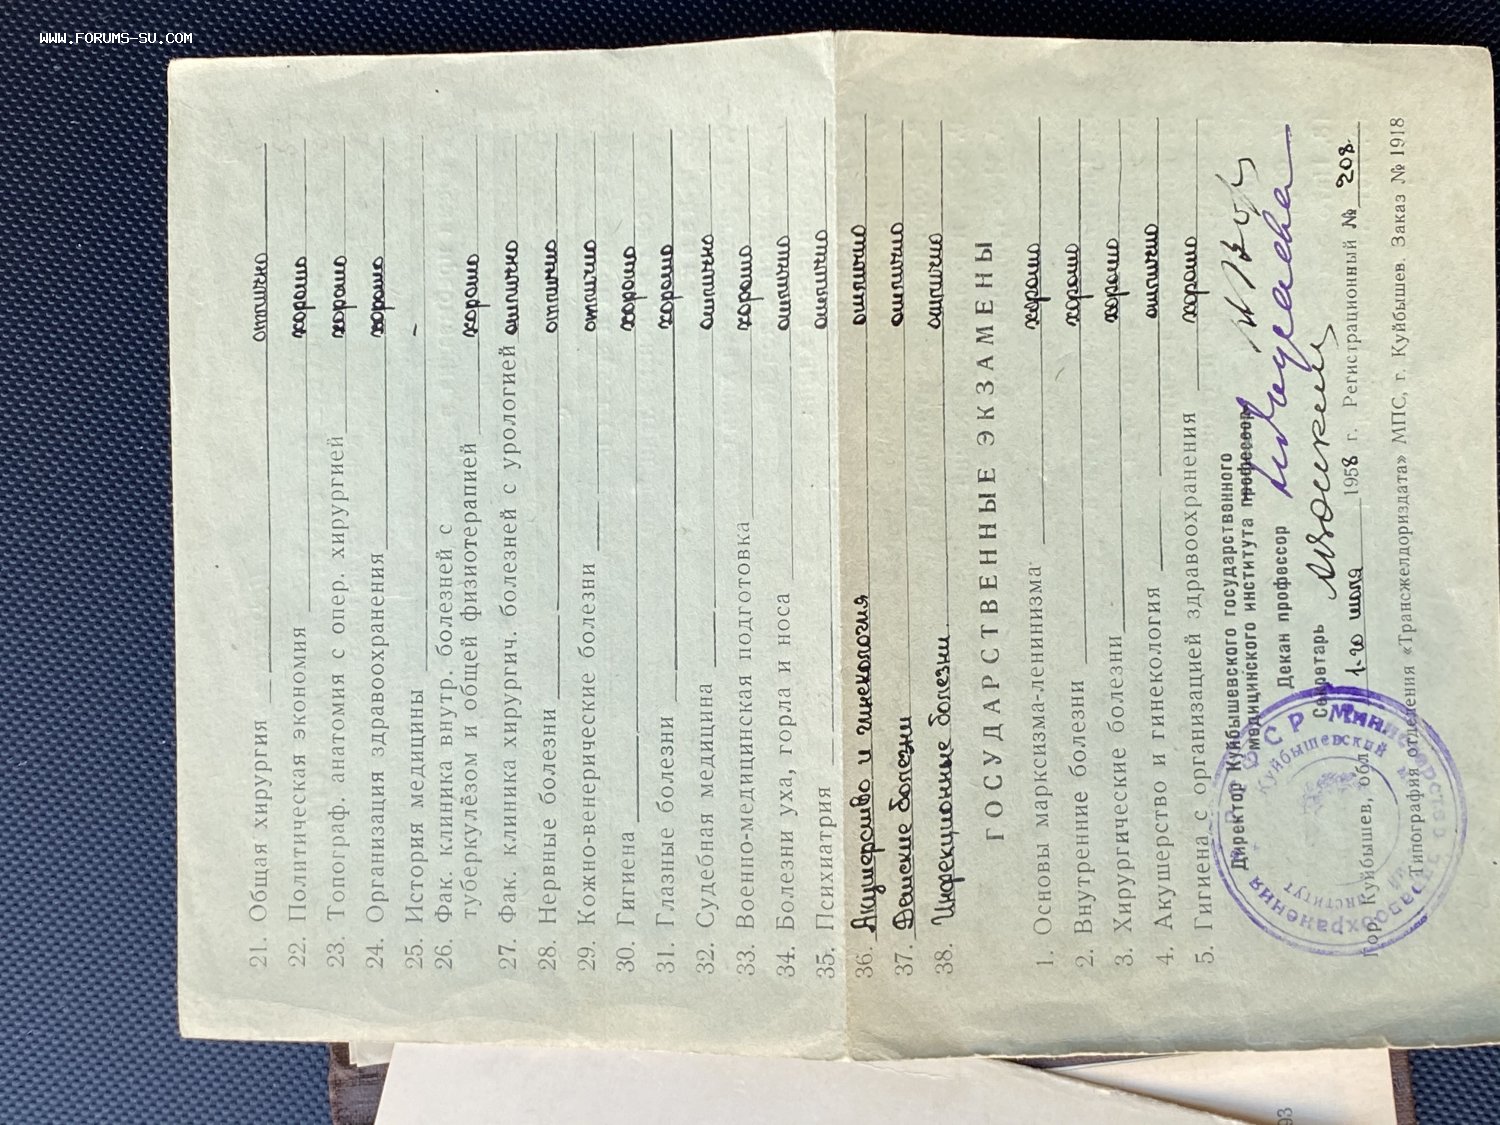 WWW.FORUMS-SU.COM
21. Общая хирургия отлично
22. Политическая экономия хорошо
23. Топограф. анатомия с опер. хирургией хорошо
24. Организация здравоохранения хорошо
25. История медицины –
26. Фак. клиника внутр. болезней с
туберкулёзом и общей физиотерапией хорошо
27. Фак. клиника хирургич. болезней с урологией отлично
28. Нервные болезни отлично
29. Кожно-венерические болезни отлично
30. Гигиена хорошо
31. Глазные болезни хорошо
32. Судебная медицина отлично
33. Военно-медицинская подготовка хорошо
34. Болезни уха, горла и носа отлично
35. Психиатрия отлично
36. Акушерство и гинекология отлично
37. Детские болезни отлично
38. Инфекционные болезни отлично
ГОСУДАРСТВЕННЫЕ ЭКЗАМЕНЫ
1. Основы марксизма-ленинизма хорошо
2. Внутренние болезни хорошо
3. Хирургические болезни хорошо
4. Акушерство и гинекология отлично
5. Гигиена с организацией здравоохранения хорошо
Директор Куйбышевского государственного
медицинского института профессор
Декан профессор
Секретарь
гор. Куйбышев, обл. 1-го июля 1958 г. Регистрационный № 208
Типография отделения «Трансжелдориздата» МПС, г. Куйбышев. Заказ № 1918
РСФСР Министерство здравоохранения
Куйбышевский
институт
93